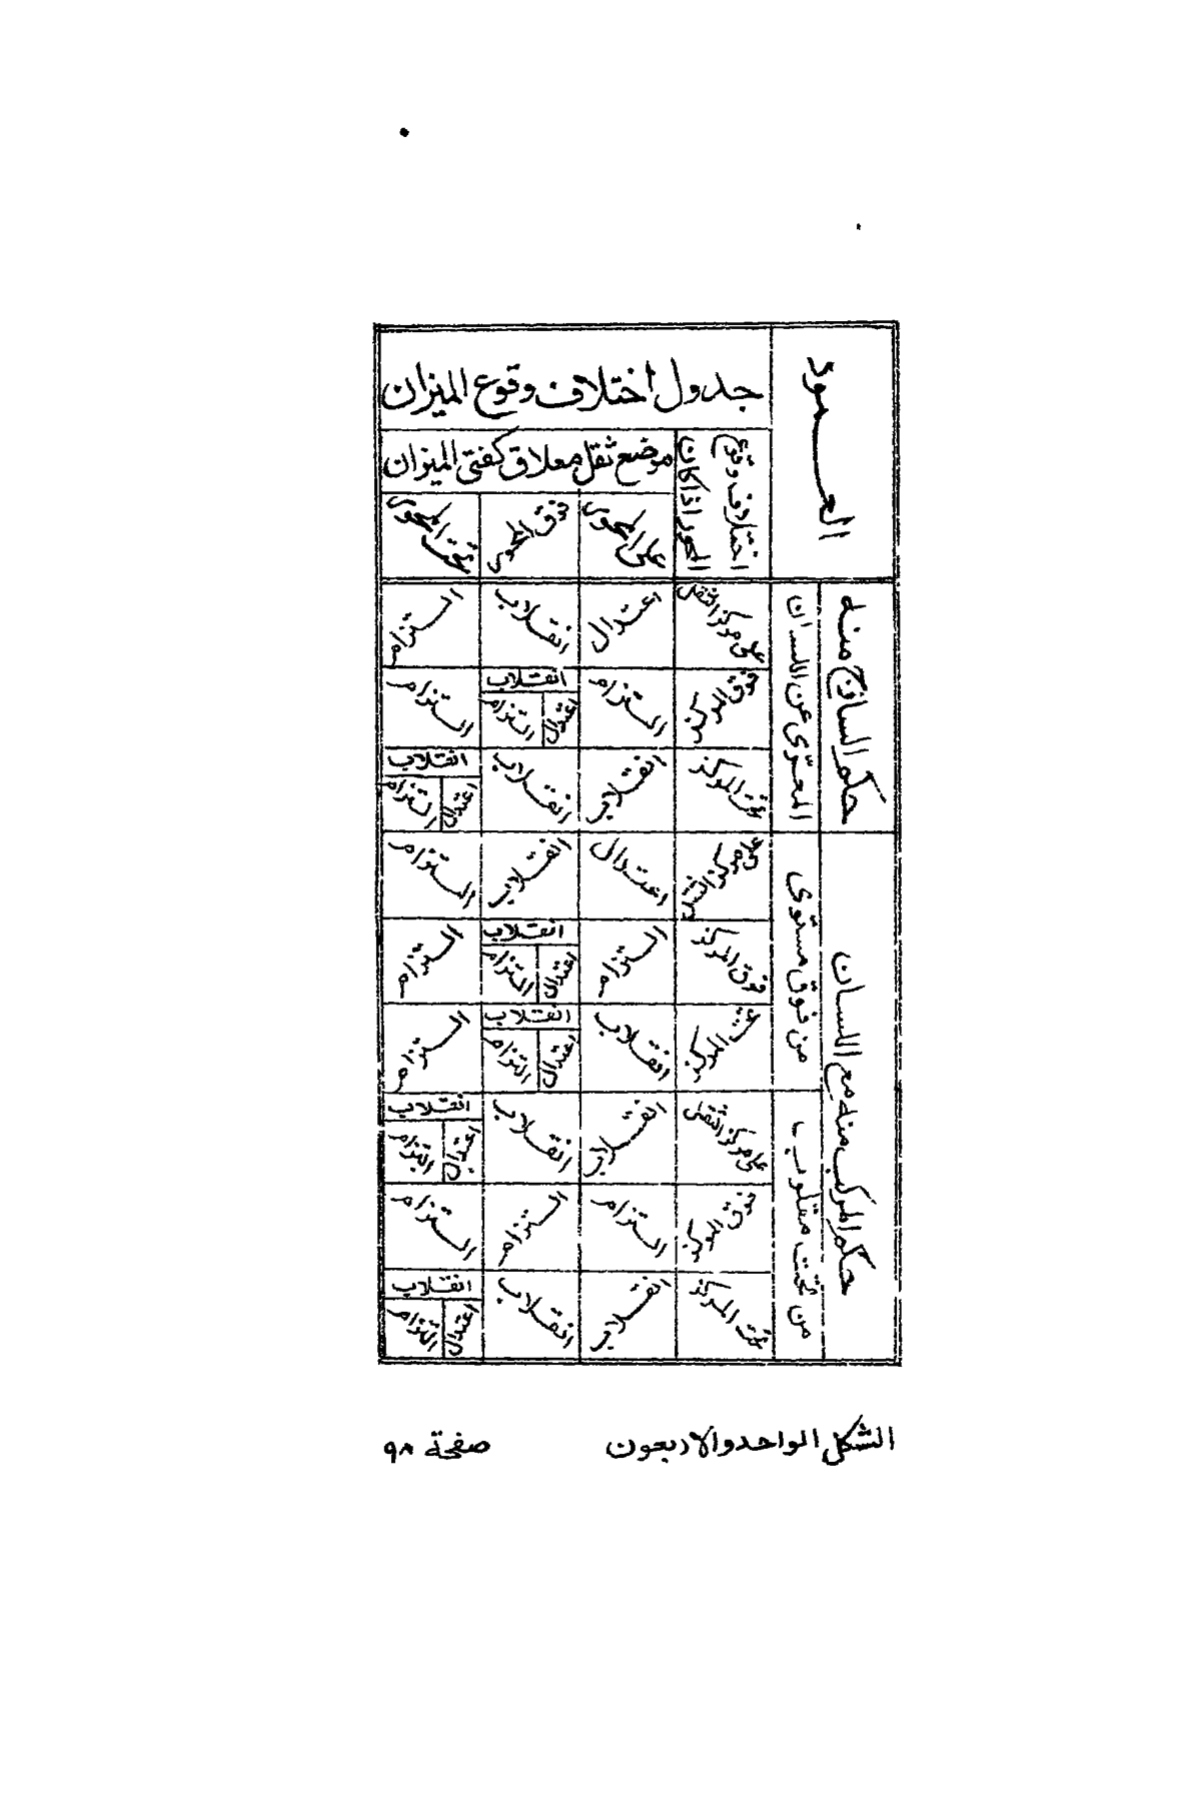 العمود
جدول اختلاف وقوع الميزان
اختلاف وقوع المحور اذا كان
موضع ثقل معلاق كفتى الميزان
على المحور
فوق المحور
تحت المحور
حكم الساذج منه
المعرّى عن اللسان
على مركز الثقل
اعتدال
انقلاب
التزام
فوق المركز
التزام
انقلاب
اعتدال
التزام
التزام
تحت المركز
انقلاب
انقلاب
انقلاب
اعتدال
التزام
حكم المركب منه مع اللسان
من فوق مستوى
على مركز الثقل
اعتدال
انقلاب
التزام
فوق المركز
التزام
انقلاب
اعتدال
التزام
التزام
تحت المركز
انقلاب
انقلاب
اعتدال
التزام
التزام
من تحت مقلوب
على مركز الثقل
انقلاب
انقلاب
انقلاب
اعتدال
التزام
فوق المركز
التزام
التزام
التزام
تحت المركز
انقلاب
انقلاب
انقلاب
اعتدال
التزام
الشكل الواحد والاربعون
صفحة ٩٨